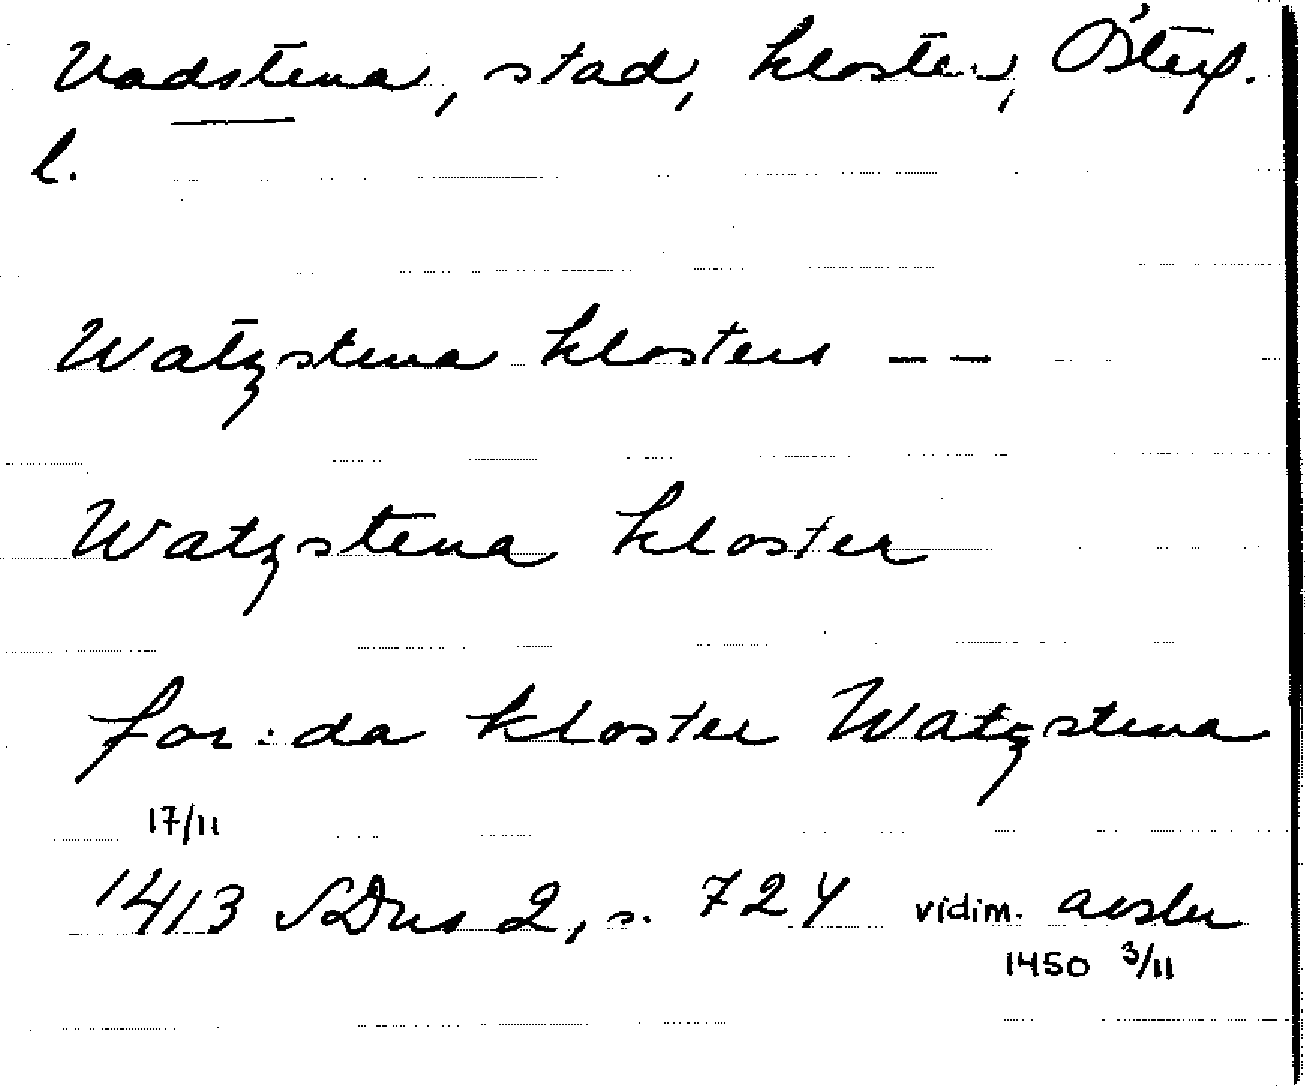 Vadstena, stad, kloster, Östergl.
Watzstena klosters – –
Watzstena kloster
for:da kloster Watzstena
17/11
1413 SDns 2, s. 724 vidim. avskr
1450 3/11